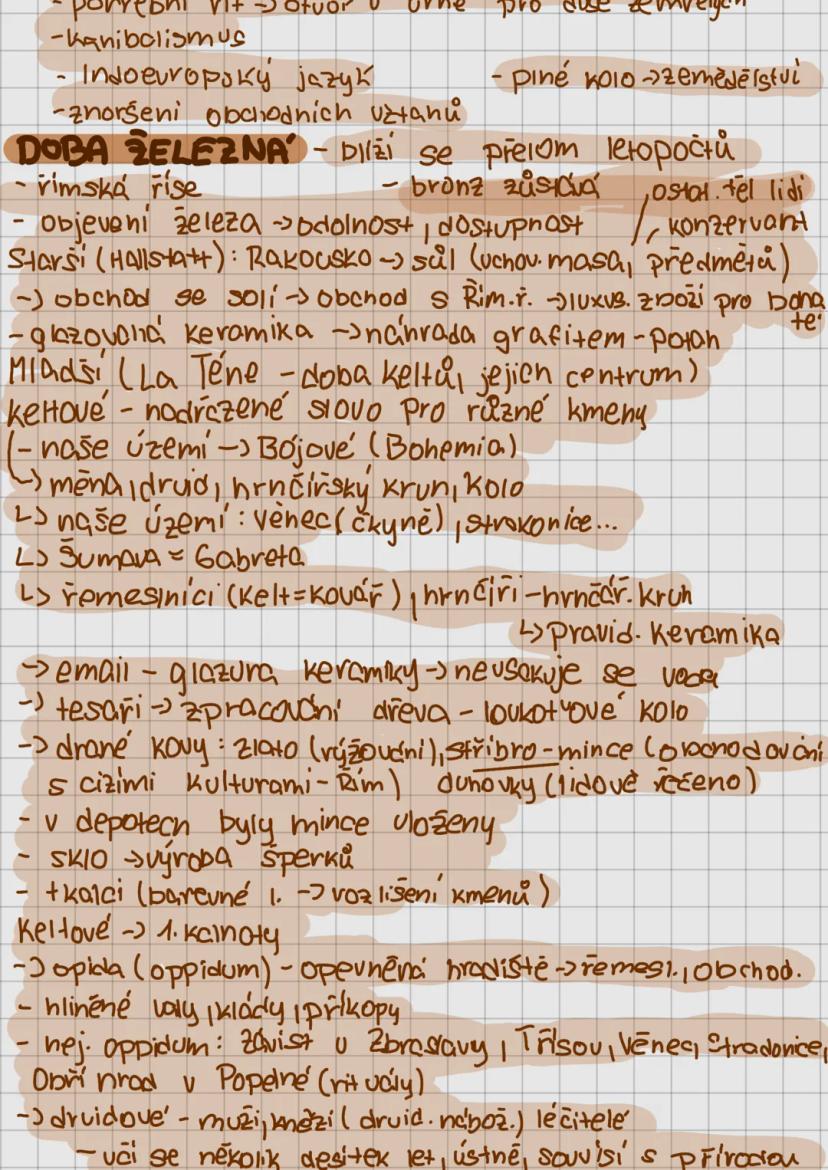 - pohřební rit -> otvor v urně pro duše zemřelých
- kanibalismus
- Indoevropský jazyk - plné kolo -> zemědělství
- znoršení obchodních vztahů
DOBA ŽELEZNÁ - blíží se přelom letopočtů
- římská říše - bronz zůstává / ostat. těl lidí
- objevení železa -> odolnost, dostupnost /, konzervant
Starší (Hallstatt): Rakousko -> sůl (uchov. masa, předmětů)
-> obchod se solí -> obchod s Řím.ř. -> luxus. zboží pro boha
té
- glazovaná keramika -> náhrada grafitem - potah
Mladší (La Téne - doba keltů, jejich centrum)
Keltové - nadřazené slovo pro různé kmeny
(- naše území -> Bójové (Bohemia)
↳ měna, druid, hrnčířský kruh, kolo
↳ naše území: věnec (čkyně), strakonice...
↳ Šumava = Gabreta
↳ řemeslníci (Kelt=kovář), hrnčíři - hrnčář. kruh
↳ pravid. keramika
-> email - glazura keramiky -> nevsakuje se voda
-> tesaři -> zpracování dřeva - loukoťové kolo
-> drahé kovy: zlato (rýžování), stříbro - mince (obchodování
s cizími kulturami - Řím) duhovky (lidově řečeno)
- v depotech byly mince uloženy
- sklo -> výroba šperků
- tkalci (barevné l. -> rozlišení kmenů)
Keltové -> 1. kalhoty
-> opida (oppidum) - opevněná hradiště -> řemesl., obchod.
- hliněné valy, klády, příkopy
- nej. oppidum: Závist u Zbraslavy, Třísov, Věnec, Stradonice,
Obří hrad v Popelné (rituály)
-> druidové - muži, kněží (druid. nábož.) léčitelé
- učí se několik desítek let, ústně, souvisí s přírodou